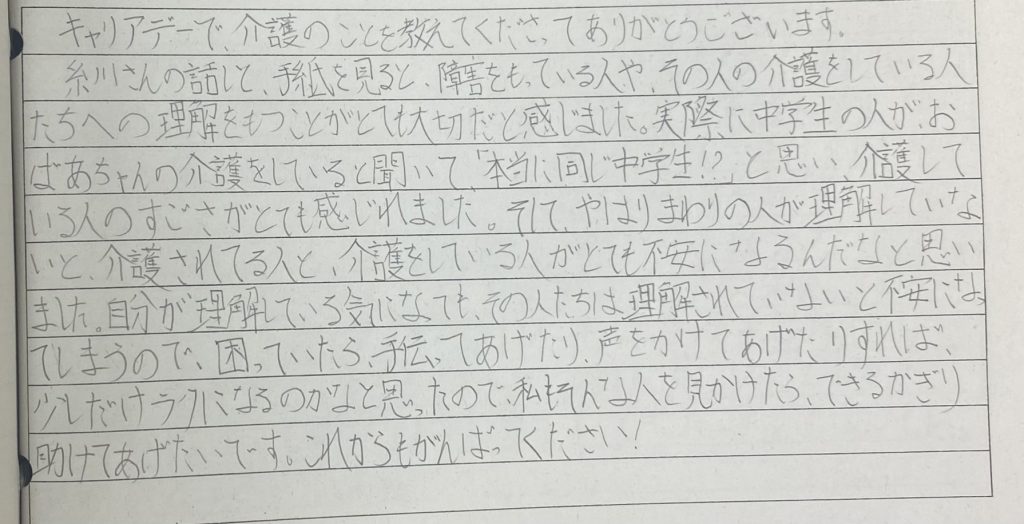 キャリアデーで、介護のことを教えてくださってありがとうございます。
糸川さんの話しと、手紙を見ると、障害をもっている人や、その人の介護をしている人
たちへの理解をもつことがとても大切だと感じました。実際に中学生の人が、お
ばあちゃんの介護をしていると聞いて、「本当に同じ中学生!?」と思い、介護して
いる人のすごさがとても感じれました。そして、やはりまわりの人が理解していな
いと、介護されてる人と、介護をしている人がとても不安になるんだなと思い
ました。自分が理解している気になっても、その人たちは理解されていないと不安になっ
てしまうので、困っていたら、手伝ってあげたり、声をかけてあげたりすれば、
少しだけラクになるのかなと思ったので、私もそんな人を見かけたら、できるかぎり
助けてあげたいです。これからもがんばってください!